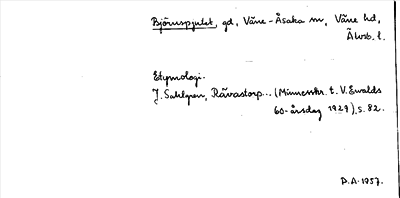 Björnspjutet, gd, Väne-Åsaka sn, Väne hd,
Älvsb. l.
Etymologi.
J. Sahlgren, Råvastorp... (Minnesskr. t. V. Ewalds
60-årsdag 1929), s. 82.
P.A. 1957.